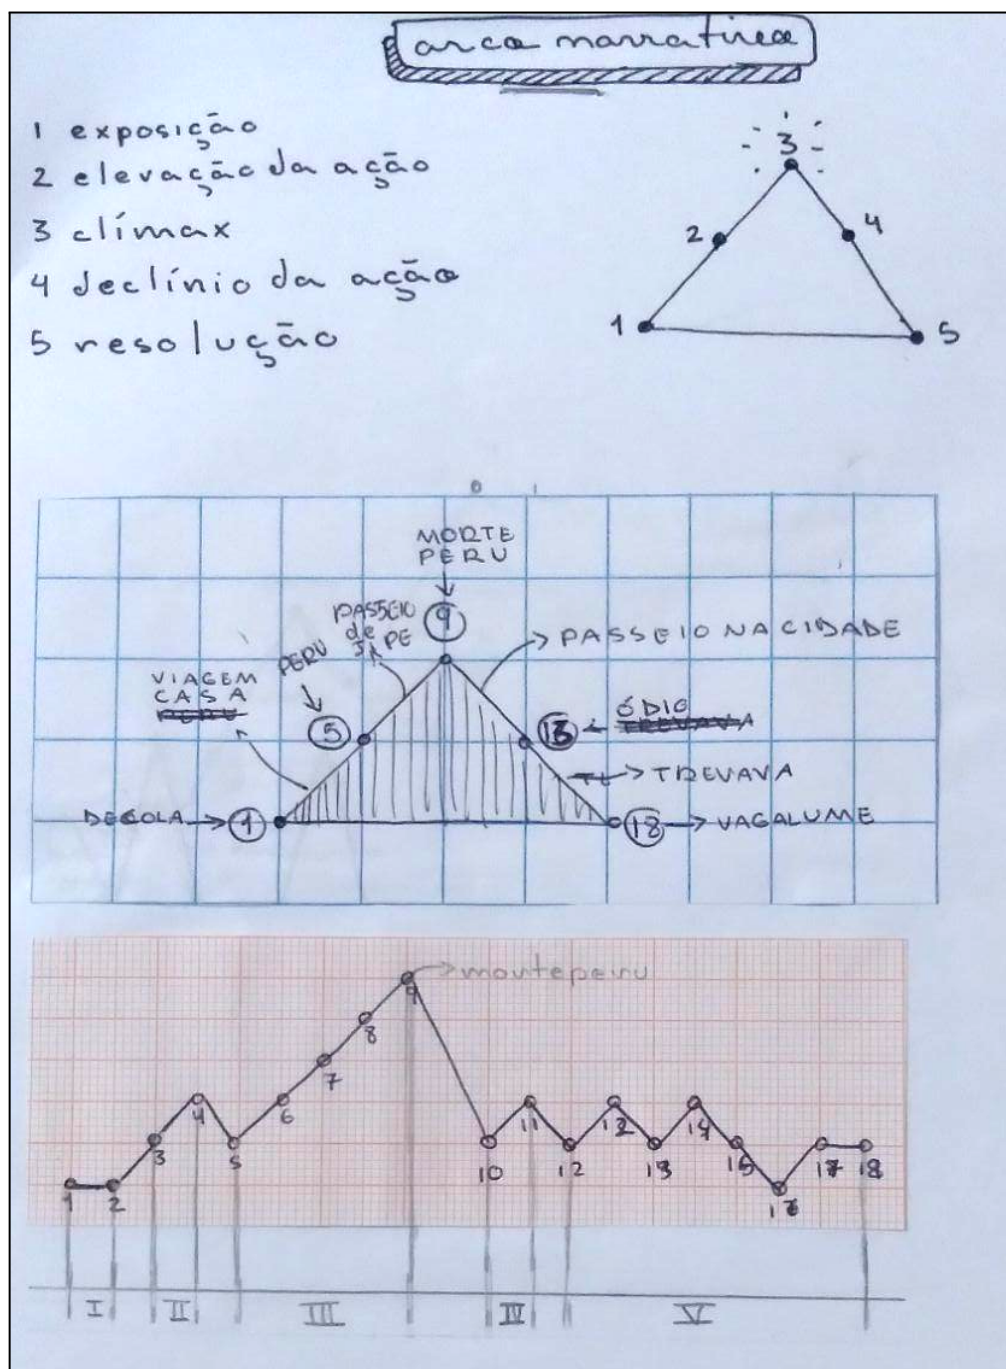 arco narrativo
1 exposição
2 elevação da ação
3 clímax
4 declínio da ação
5 resolução
3
2
4
1
5
0 1
MORTE
PERU
9
PASSEIO
de
PE
PASSEIO NA CIDADE
PERU
VIAGEM
CASA
PERU
5
13
ÓDIO
TREVAVA
TREVAVA
DECOLA
1
18
VAGALUME
morte peru
9
8
7
4
6
3
5
11
12
14
10
12
13
15
17
18
1
2
16
I II III IV V